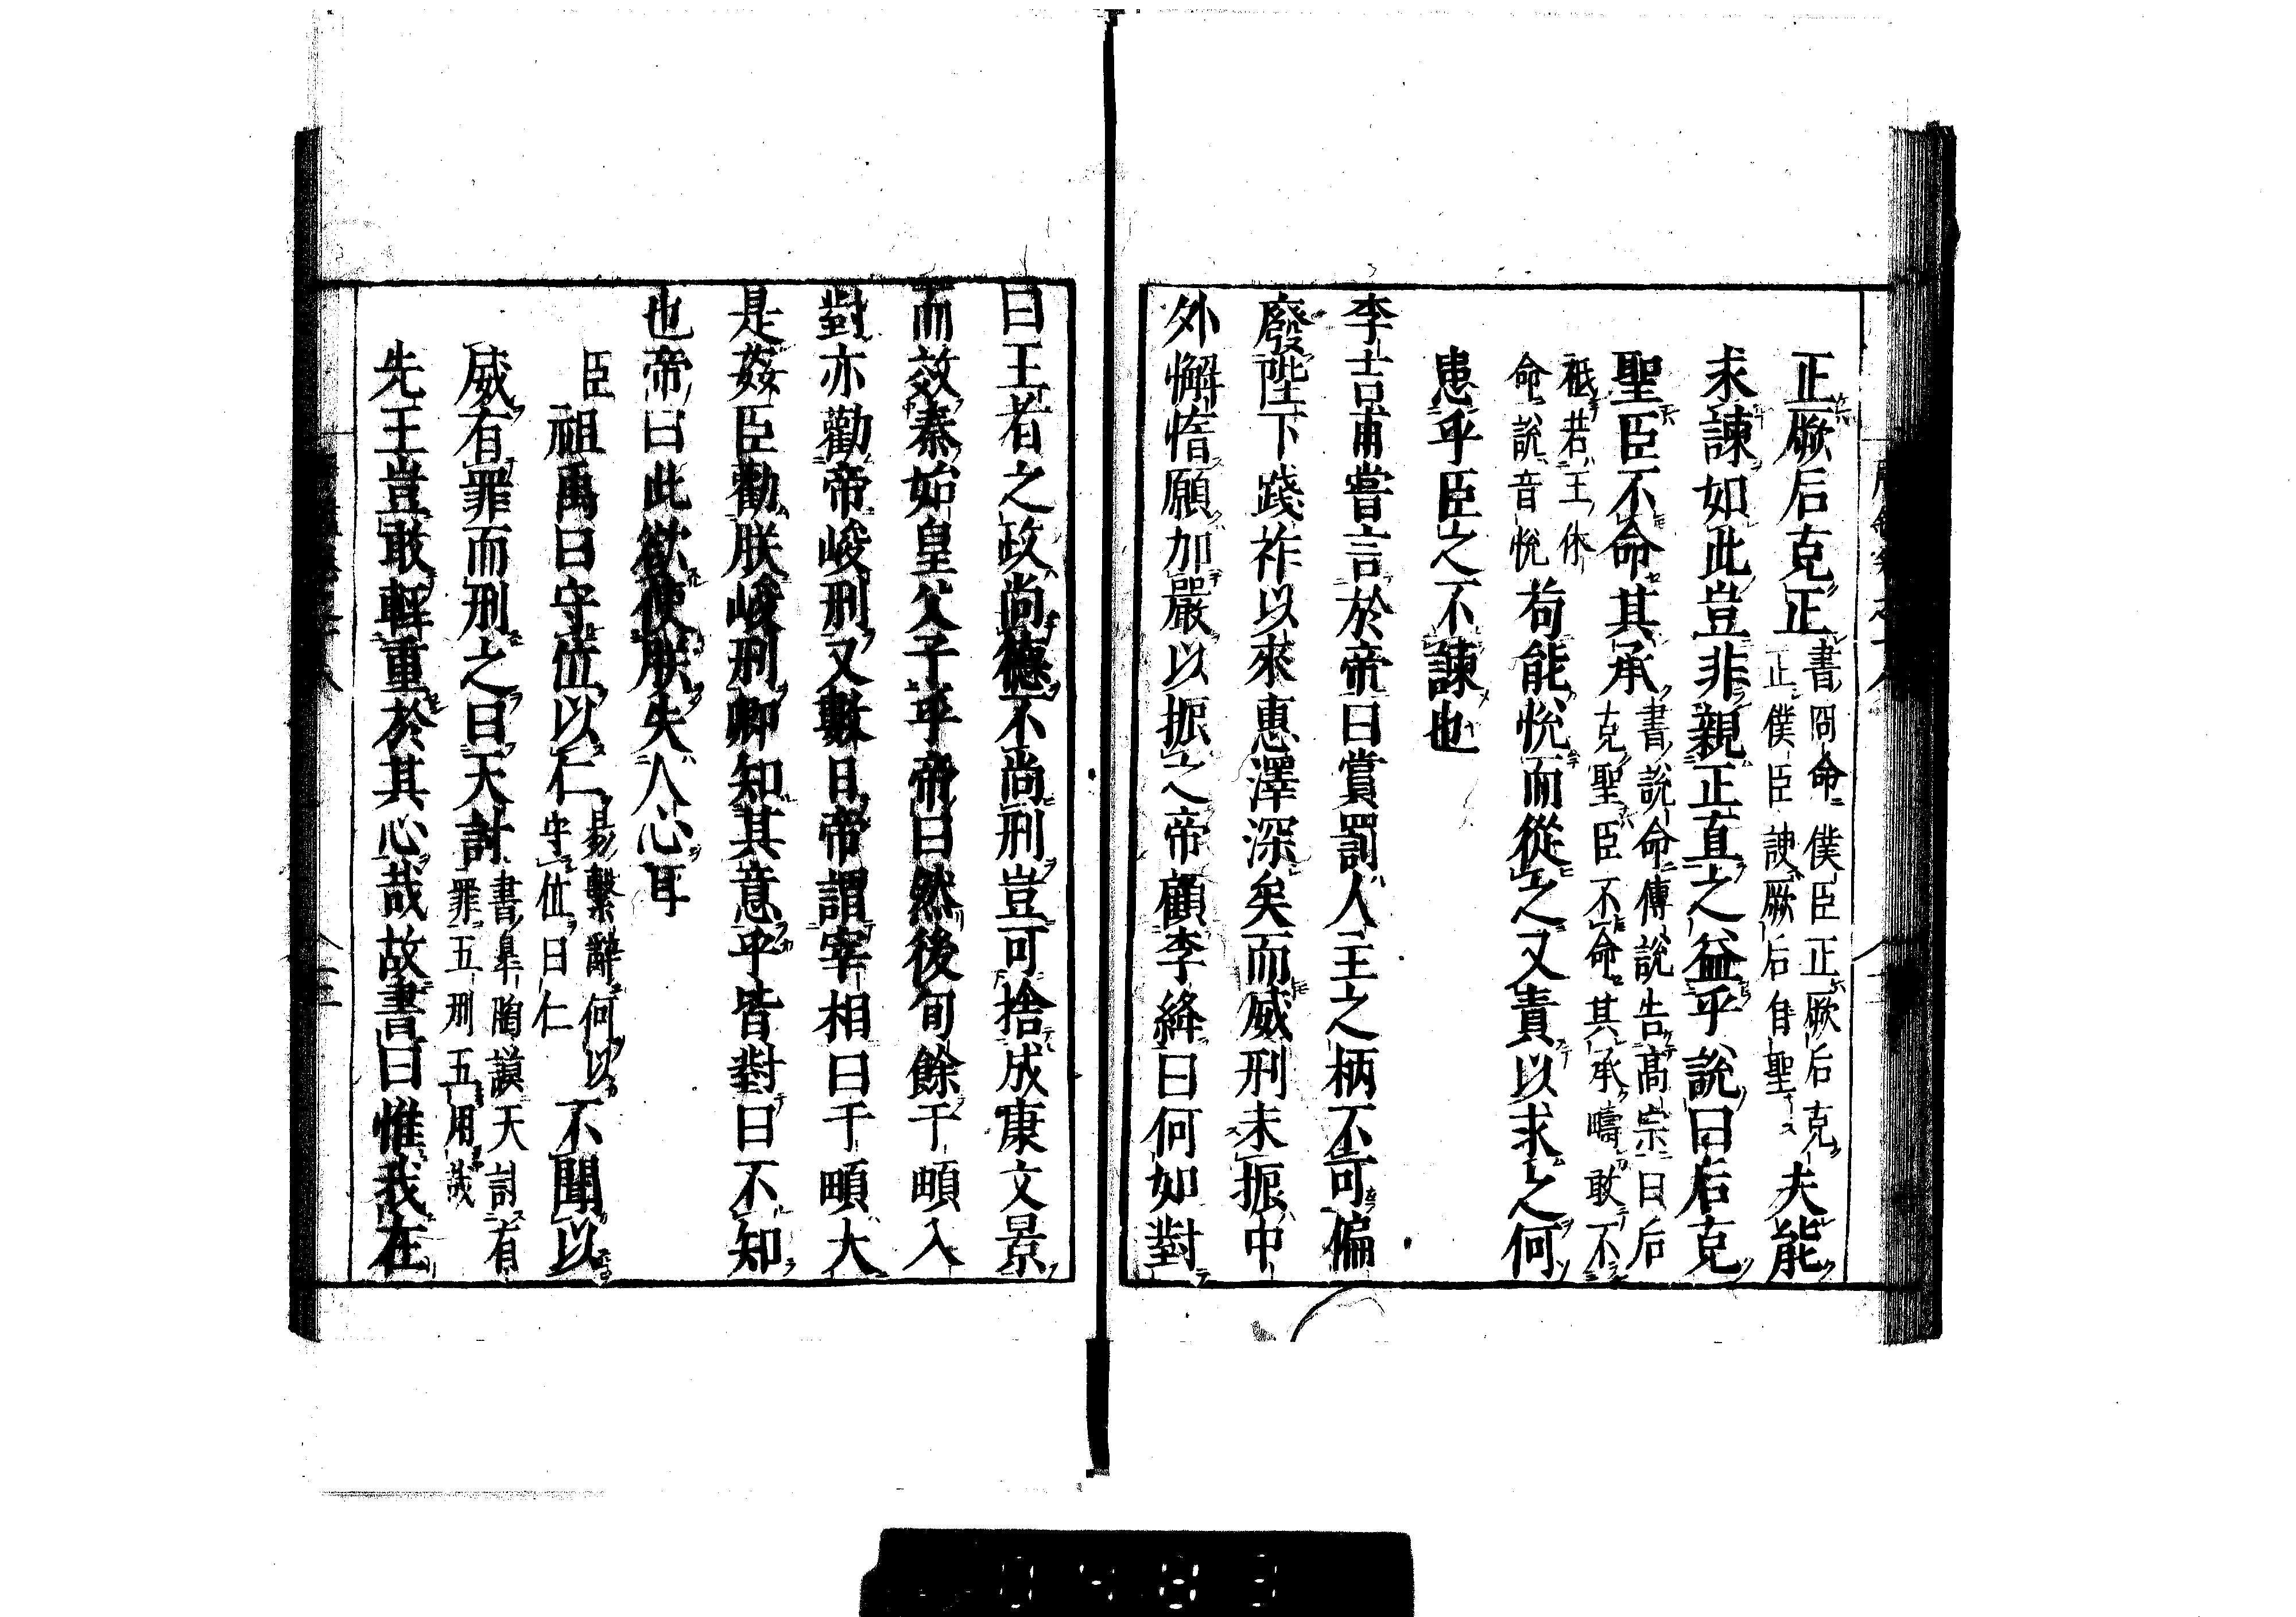 正厥后克正書冏命僕臣正厥后克正僕臣諛厥后自聖夫能
求諫如此豈非親正直之益乎說曰后克
聖臣不命其承書說命傳說告高宗曰后克聖臣不命其承疇敢不
祗若王休命說音悅苟能悅而從之又責以求之何
患乎臣之不諫也
李吉甫嘗言於帝曰賞罰人主之柄不可偏
廢陛下踐祚以來惠澤深矣而威刑未振中
外懈惰願加嚴以振之帝顧李絳曰何如對
曰王者之政尚德不尚刑豈可捨成康文景
而效秦始皇父子乎帝曰然後旬餘于頔入
對亦勸帝峻刑又數日帝謂宰相曰于頔大
是姦臣勸朕峻刑卿知其意乎皆對曰不知
也帝曰此欲使朕失人心耳
臣祖禹曰守位以仁易繫辭何以守位曰仁不聞以
威有罪而刑之曰天討書皋陶謨天討有罪五刑五用哉
先王豈敢輕重於其心哉故書曰惟我在